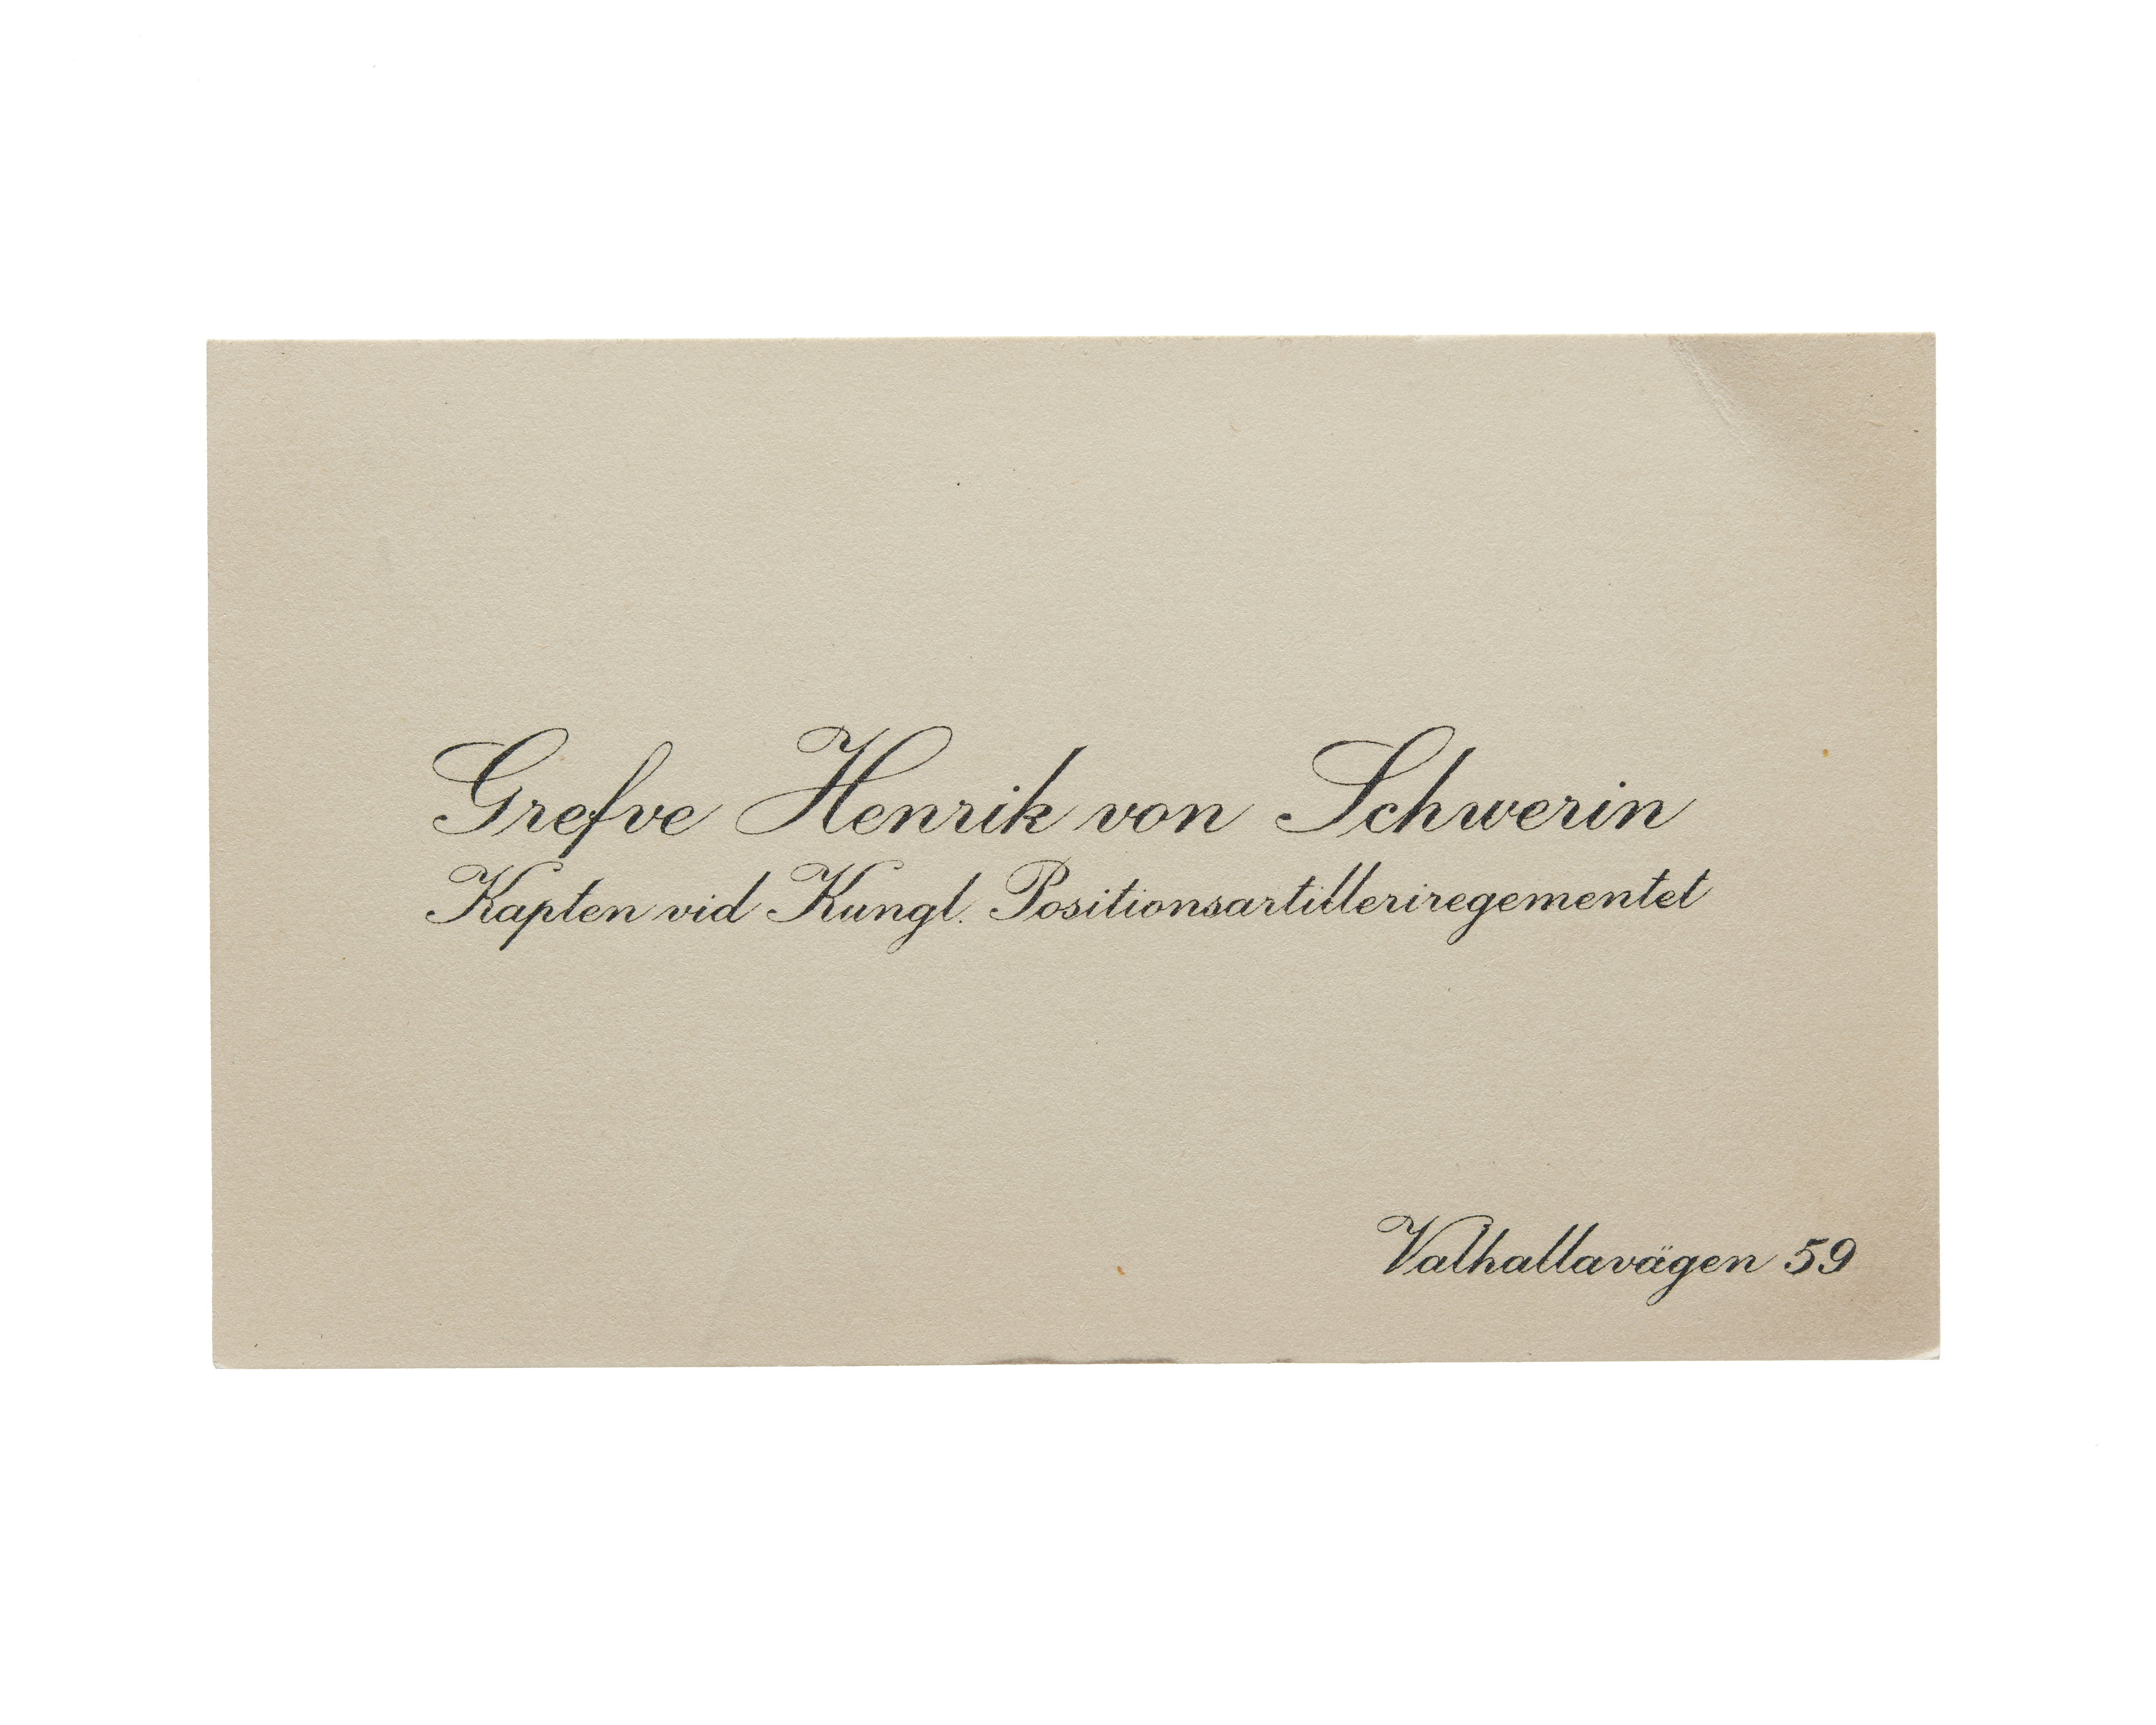 Grefve Henrik von Schwerin
Kapten vid Kungl. Positionsartilleriregementet
Valhallavägen 59